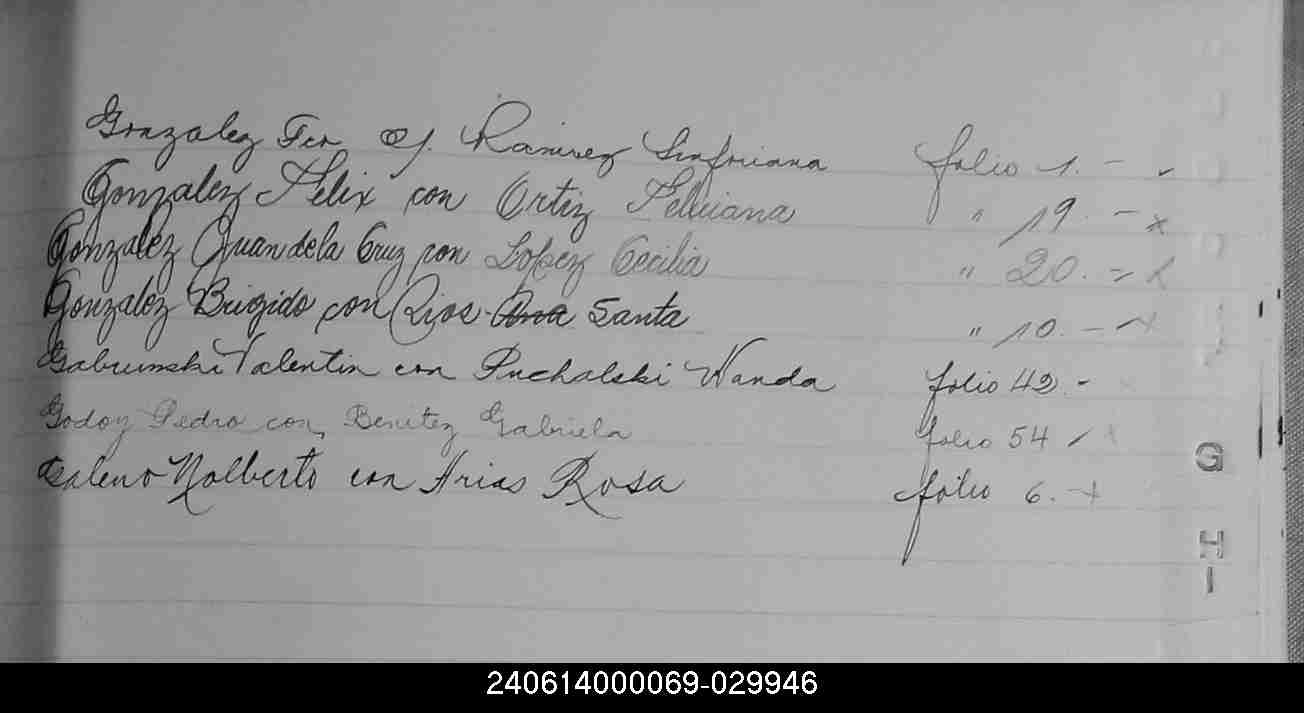 Gonzalez Fco c/. Ramirez Sinforiana folio 1. -
Gonzalez Felix con Ortiz Feliciana " 19. - x
Gonzalez Juan de la Cruz con Lopez Cecilia " 20. - x
Gonzalez Brigido con Rios Ana Santa " 10. - x
Valentin con Puchalski Wanda folio 42. -
Godoy Pedro con Benitez Gabriela folio 54 - x
Galeno Nolberto con Arias Rosa folio 6. - x
G
H
I
240614000069-029946